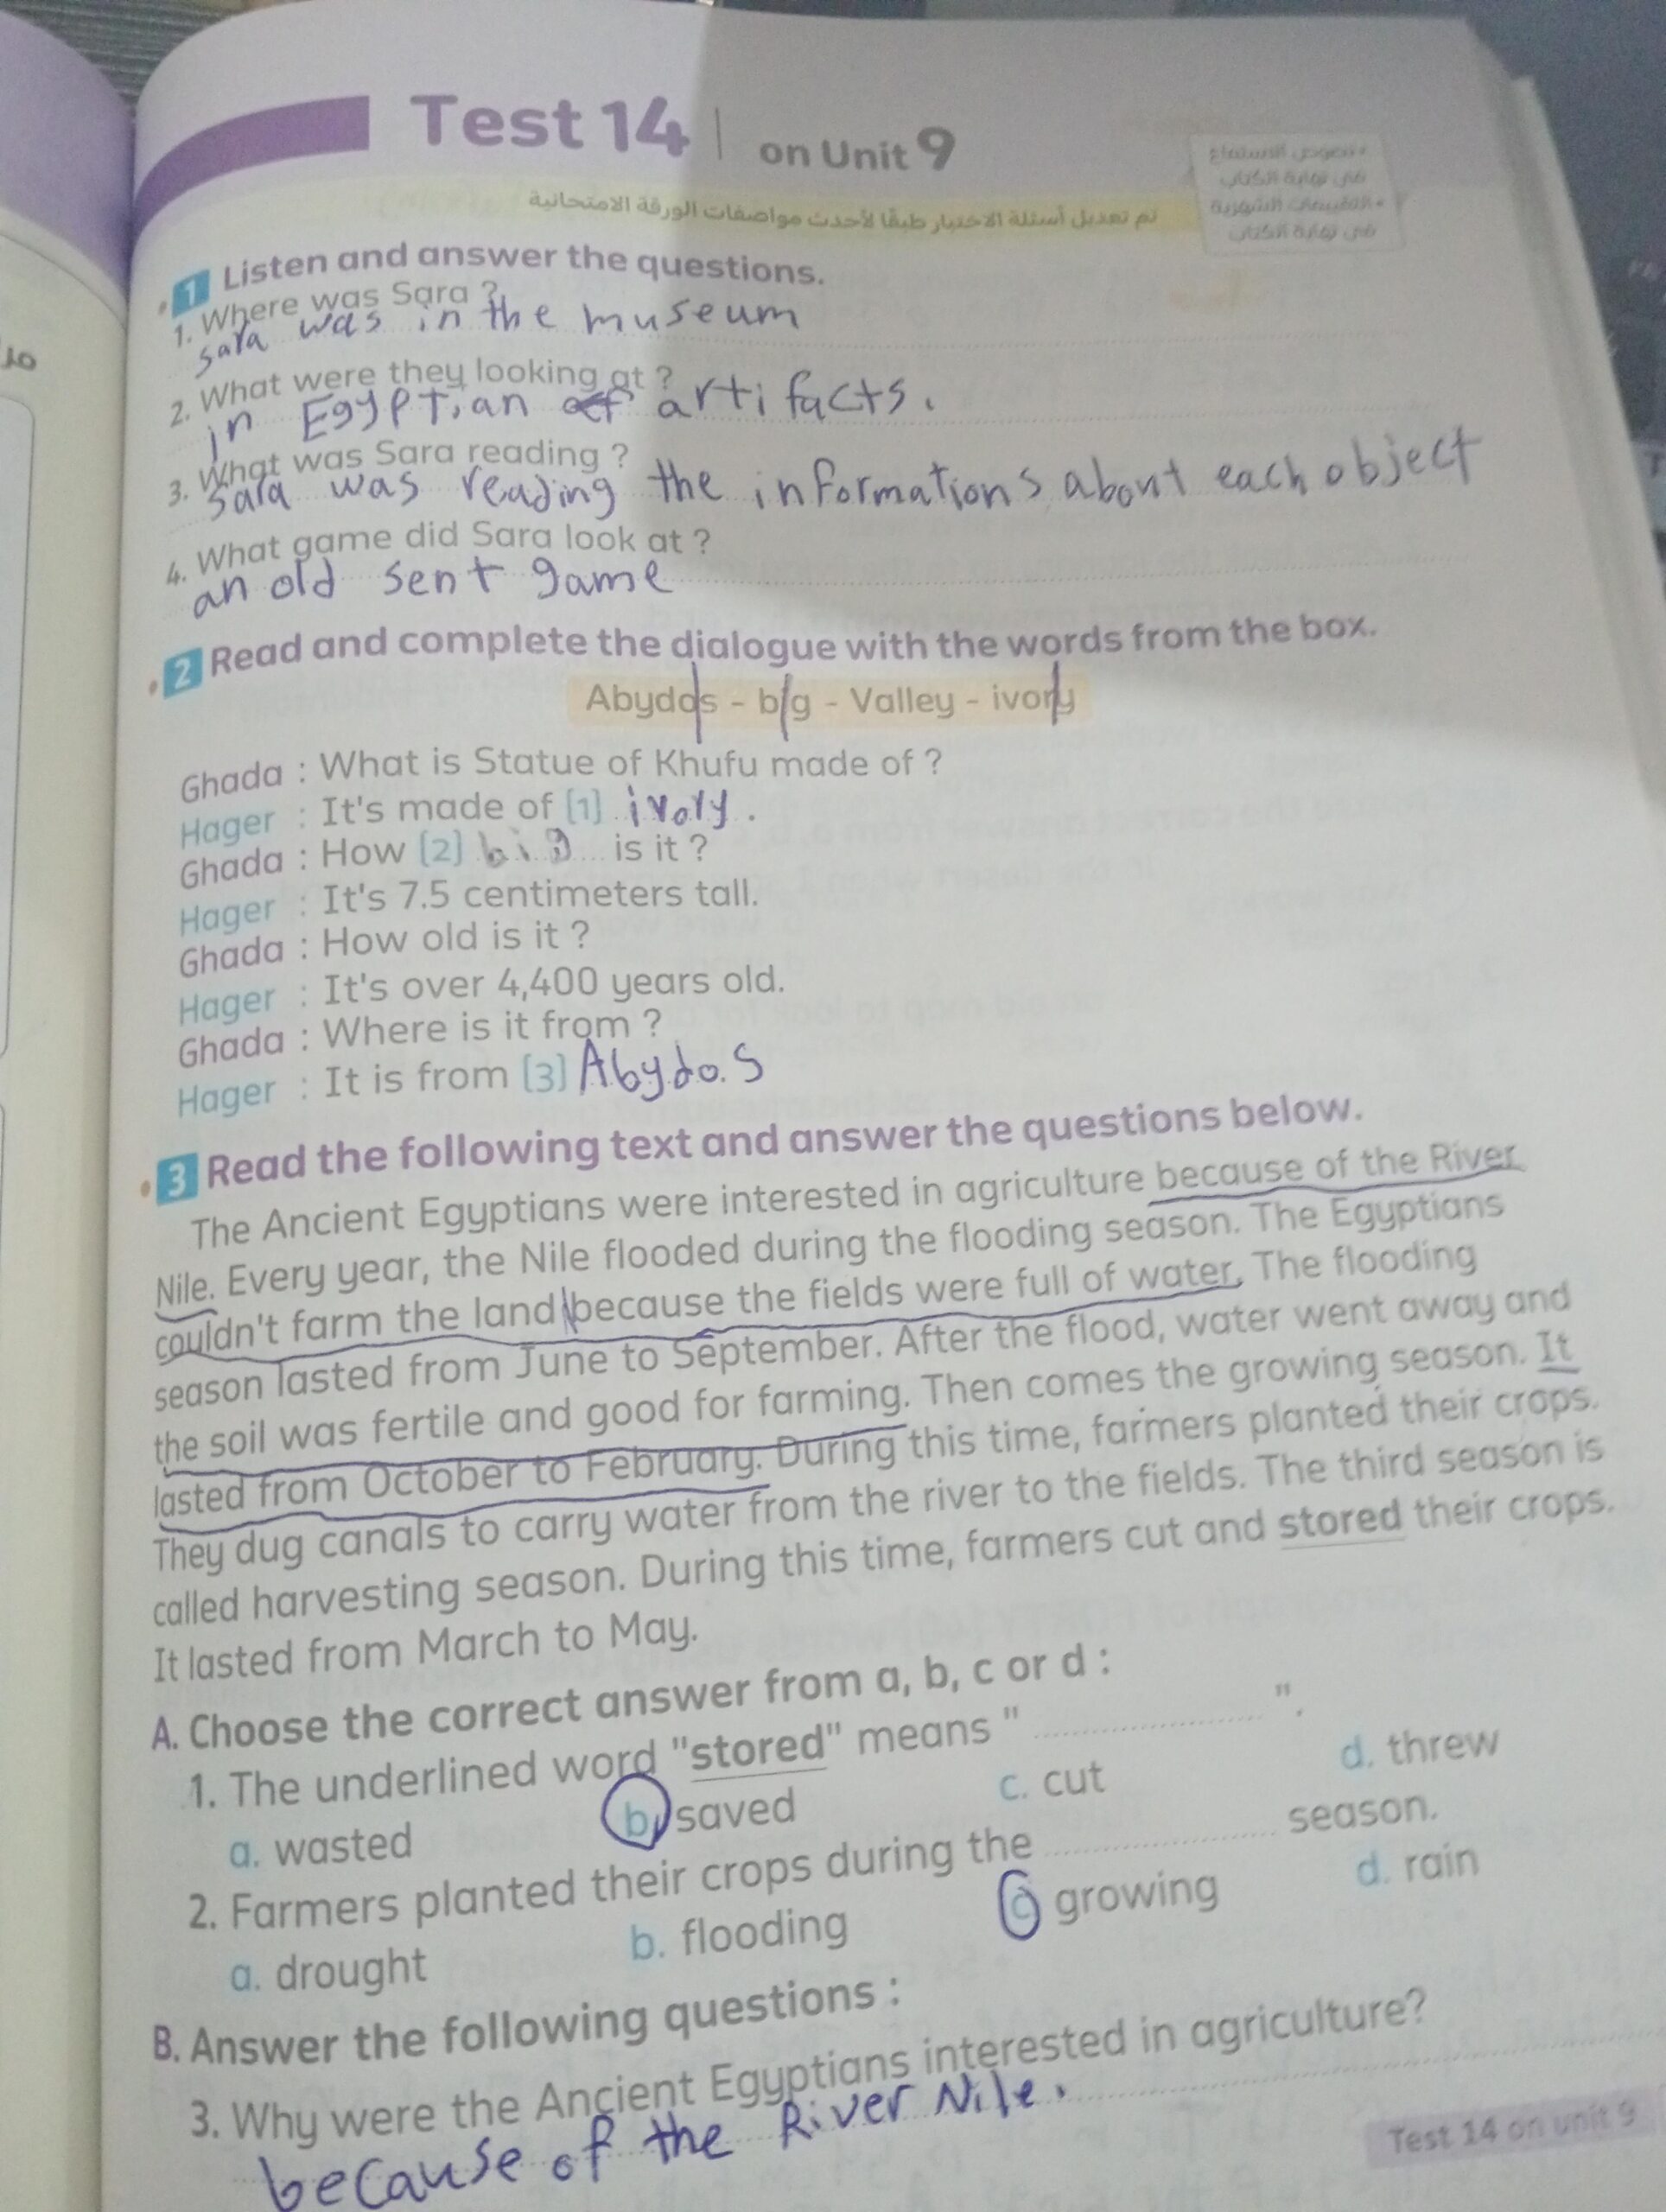 Test 14 | on Unit 9
تم تعديل أسئلة الاختبار طبقًا لأحدث مواصفات الورقة الامتحانية
نصوص الاستماع
في نهاية الكتاب
التقييمات الشهرية
في نهاية الكتاب
1 Listen and answer the questions.
1. Where was Sara ?
sara was in the museum
2. What were they looking at ?
in Egyptian artifacts.
3. What was Sara reading ?
Sara was reading the informations about each object
4. What game did Sara look at ?
an old sent game
2 Read and complete the dialogue with the words from the box.
Abydos - big - Valley - ivory
Ghada : What is Statue of Khufu made of ?
Hager : It's made of (1) ivory.
Ghada : How (2) big is it ?
Hager : It's 7.5 centimeters tall.
Ghada : How old is it ?
Hager : It's over 4,400 years old.
Ghada : Where is it from ?
Hager : It is from (3) Abydos
3 Read the following text and answer the questions below.
The Ancient Egyptians were interested in agriculture because of the River
Nile. Every year, the Nile flooded during the flooding season. The Egyptians
couldn't farm the land because the fields were full of water. The flooding
season lasted from June to September. After the flood, water went away and
the soil was fertile and good for farming. Then comes the growing season. It
lasted from October to February. During this time, farmers planted their crops.
They dug canals to carry water from the river to the fields. The third season is
called harvesting season. During this time, farmers cut and stored their crops.
It lasted from March to May.
A. Choose the correct answer from a, b, c or d :
1. The underlined word "stored" means " .................... ".
a. wasted b. saved c. cut d. threw
2. Farmers planted their crops during the .................... season.
a. drought b. flooding c. growing d. rain
B. Answer the following questions :
3. Why were the Ancient Egyptians interested in agriculture?
because of the River Nile.
Test 14 on unit 9